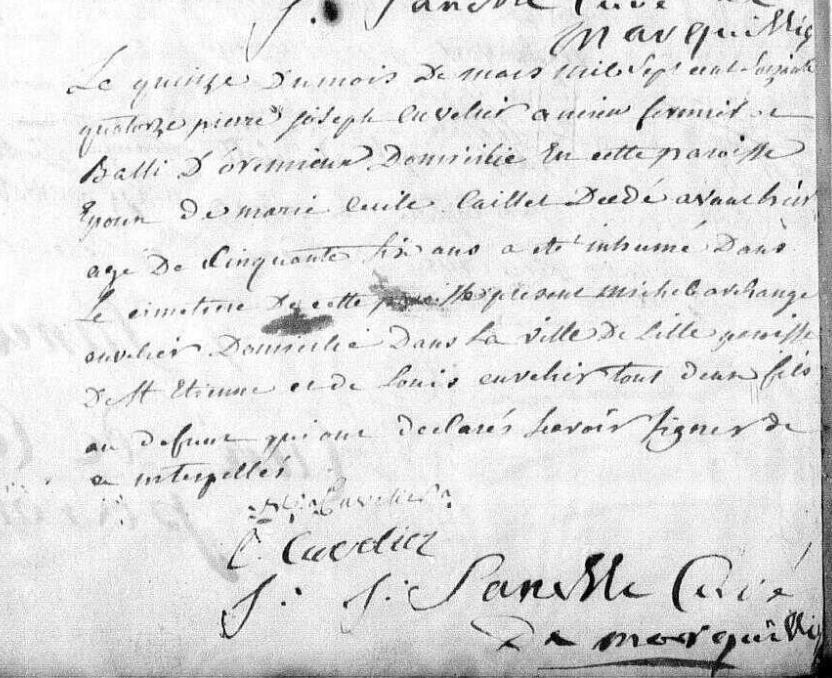 j. Sanelle Curé de
Marquillie
Le quinze Du mois De mars mil Sept cent Soixante
quatorze pierre joseph cuvelier ancien fermier et
Balli D'
Domicilie En cette paroisse
Epoux de marie Cecile Caillet Decedé avant hier
agé De Cinquante six ans a eté inhumé Dans
Le cimetiere De cette present michel archange
cuvelier Domicilié Dans La ville De Lille paroisse
De St Etienne et de Louis cuvelier tout deux fils
au defunt qui ont declarés Scavoir Signer de
ce interpellés
Cuvelier
L. Cuvelier
j. j. Sanelle Curé
De marquillie